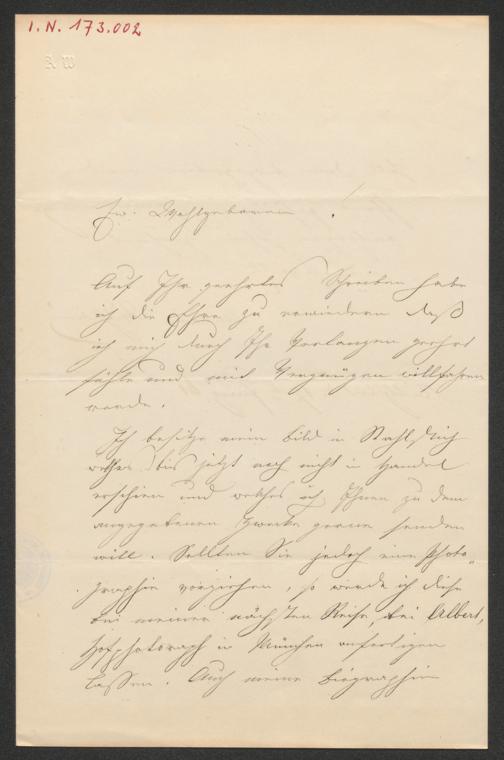 I. N. 173.002
A W
Ew. Wohlgeboren !
Auf Ihr geehrtes Schreiben habe
ich die Ehre zu erwiedern daß
ich mich durch Ihr Verlangen geehrt
fühle und mit Vergnügen willfahren
werde.
Ich besitze mein Bild in Stahlstich
welches bis jetzt noch nicht in Handel
erschien und welches ich Ihnen zu dem
angegebenen Zwecke gerne senden
will. Sollten Sie jedoch eine Photo„
graphie vorziehen, so werde ich diese
bei meiner nächsten Reise, bei Albert,
Hofphotograph in München anfertigen
lassen. Auch meine Biographie